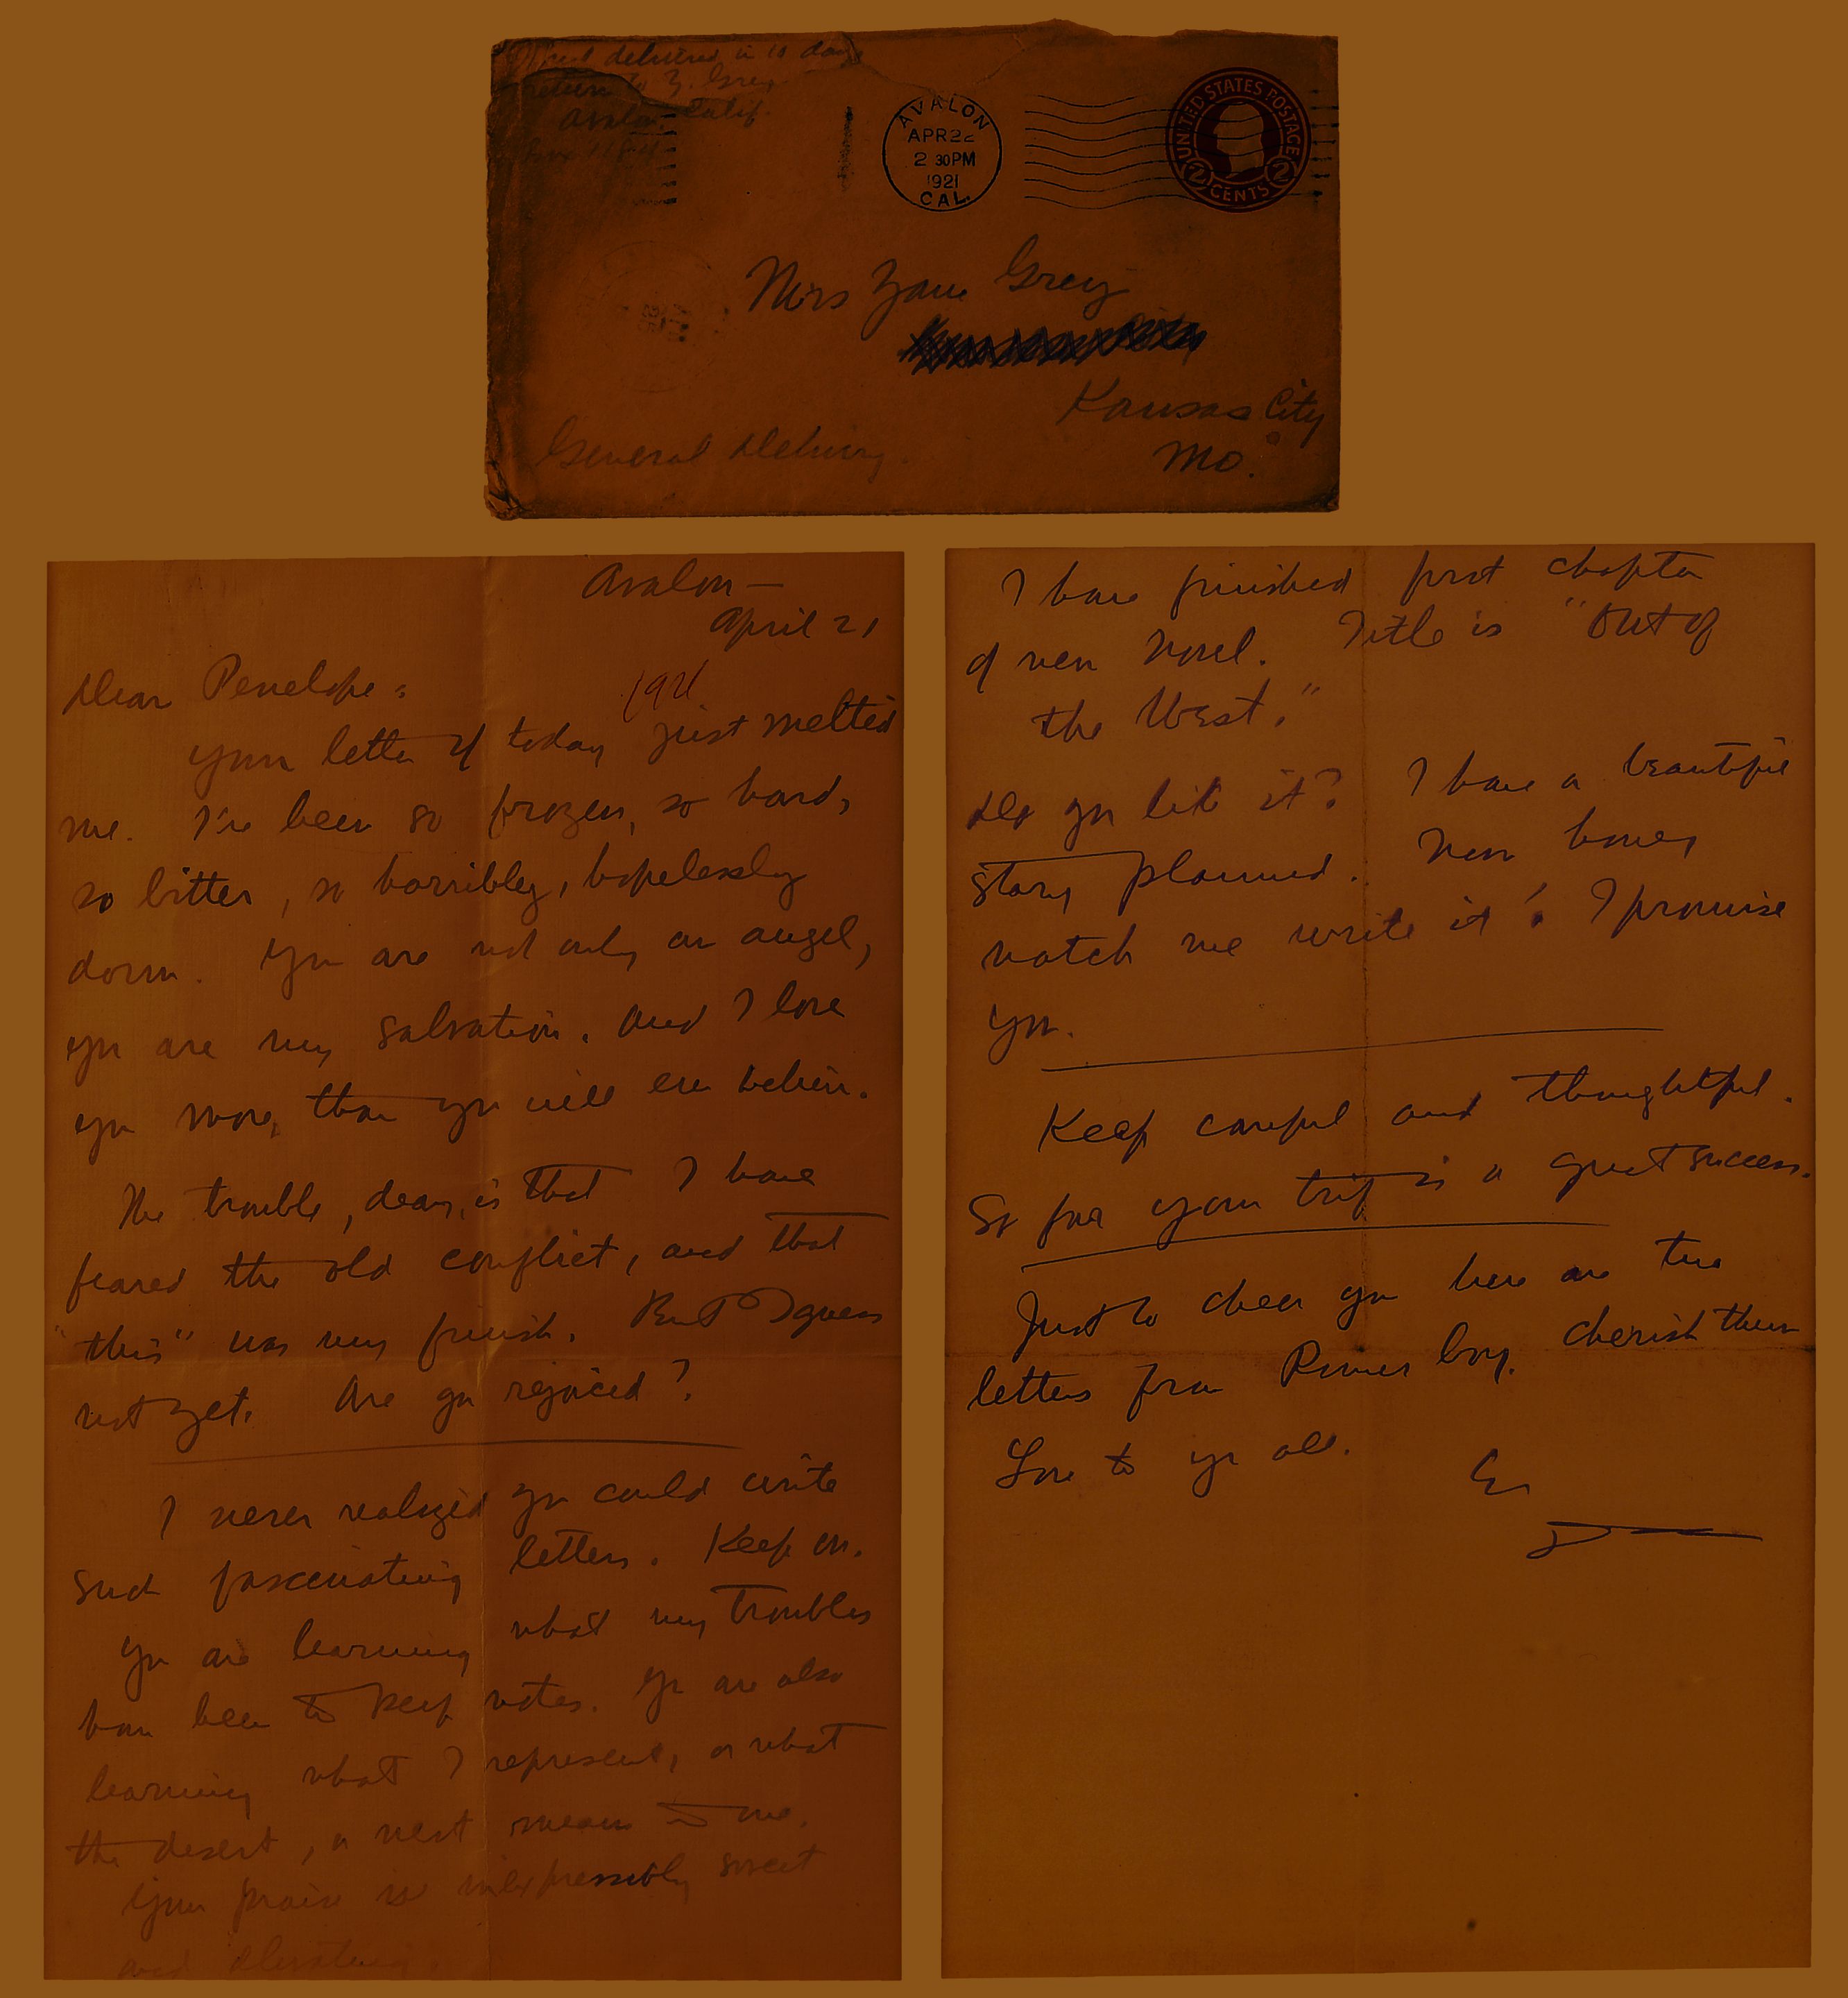 If not delivered in 10 days
return to Z. Grey
Avalon, Calif.
Box
AVALON
APR 22
2 30PM
1921
CAL.
UNITED STATES POSTAGE
2 CENTS 2
Mrs Zane Grey
Kansas City
Mo.
General Delivery.
Avalon —
April 21
1921
Dear Penelope:
Your letter of today just melted
me. I've been so frozen, so hard,
so bitter, so horribly, hopelessly
down. You are not only an angel,
you are my salvation. And I love
you more, than you will ever believe.
The trouble, dear, is that I have
feared the old conflict, and that
"this" was my finish. But I guess
not yet. Are you rejoiced?
I never realized you could write
such fascinating letters. Keep on.
You are learning what my troubles
have been to keep notes. You are also
learning what I represent, or what
the desert, or west means to me.
Your praise is inexpressibly sweet
and
I have finished first chapter
of new novel. Title is "Out of
the West."
Do you like it? I have a beautiful
story planned. Now honey
watch me write it! I promise
you.
Keep careful and thoughtful.
So far your trip is a great success.
Just to cheer you here are two
letters from Romer boy. Cherish them
Love to you all.